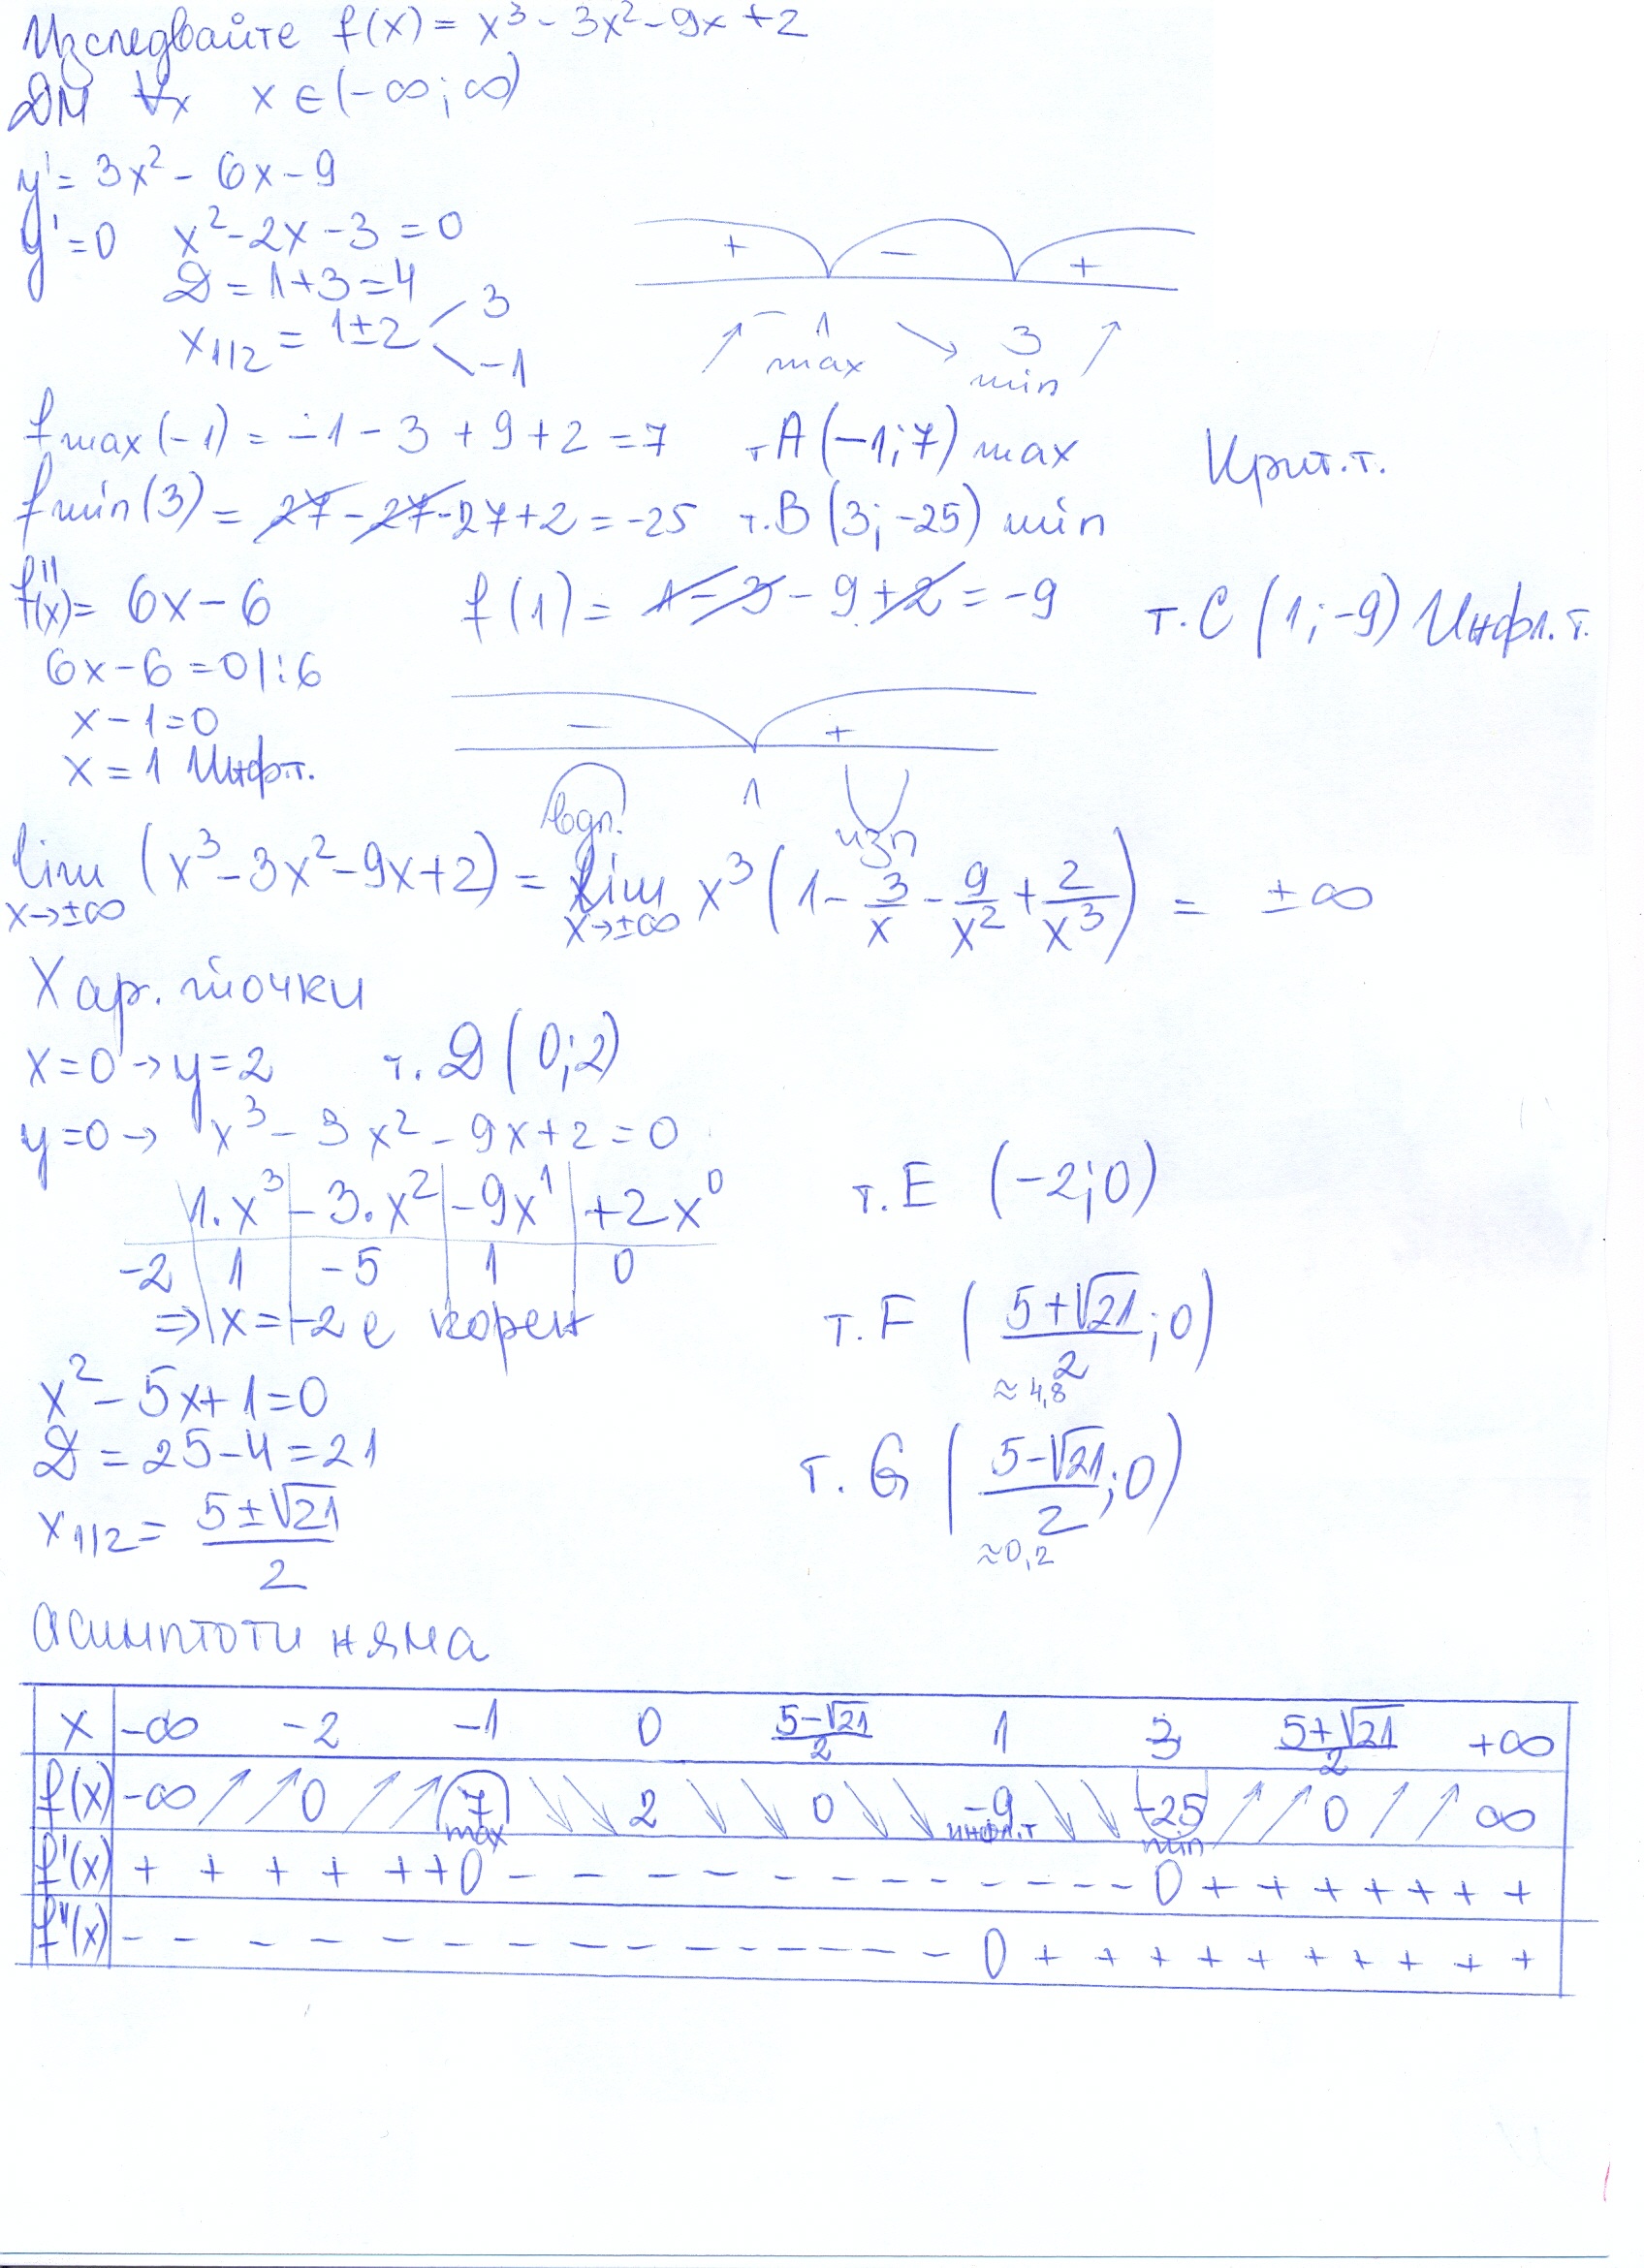 Изследвайте f(x) = x³ - 3x² - 9x + 2
ДМ ∀x x ∈ (-∞; ∞)
y' = 3x² - 6x - 9
y' = 0 x² - 2x - 3 = 0
D = 1 + 3 = 4
x₁/₂ = 1 ± 2 < 3
-1
+ - +
↗ -1 ↘ 3 ↗
max min
fmax(-1) = -1 - 3 + 9 + 2 = 7 т.A (-1; 7) max Крит.т.
fmin(3) = 27 - 27 - 27 + 2 = -25 т.B (3; -25) min
f''(x) = 6x - 6 f(1) = 1 - 3 - 9 + 2 = -9 т.C (1; -9) Инфл.т.
6x - 6 = 0 |:6
x - 1 = 0
x = 1 Инфл.т.
- +
вдл. 1 изп
lim x→±∞ (x³ - 3x² - 9x + 2) = lim x→±∞ x³ (1 - 3/x - 9/x² + 2/x³) = ±∞
Хар. точки
x = 0 → y = 2 т. D (0; 2)
y = 0 → x³ - 3x² - 9x + 2 = 0
1.x³ | -3.x² | -9x¹ | +2x⁰
-2 | 1 | -5 | 1 | 0
⇒ x = -2 е корен
т.E (-2; 0)
т.F ((5 + √21)/2; 0)
≈ 4,8
x² - 5x + 1 = 0
D = 25 - 4 = 21
x₁/₂ = (5 ± √21)/2
т. G ((5 - √21)/2; 0)
≈ 0,2
Асимптоти няма
x | -∞ -2 -1 0 (5-√21)/2 1 3 (5+√21)/2 +∞
f(x) | -∞ ↗ ↗ 0 ↗ ↗ 7 ↘ ↘ 2 ↘ ↘ 0 ↘ ↘ -9 ↘ ↘ -25 ↗ ↗ 0 ↗ ↗ ∞
max инфл.т min
f'(x) | + + + + + + 0 - - - - - - - - - - - - 0 + + + + + + +
f''(x) | - - - - - - - - - - - - - - - - 0 + + + + + + + + + +